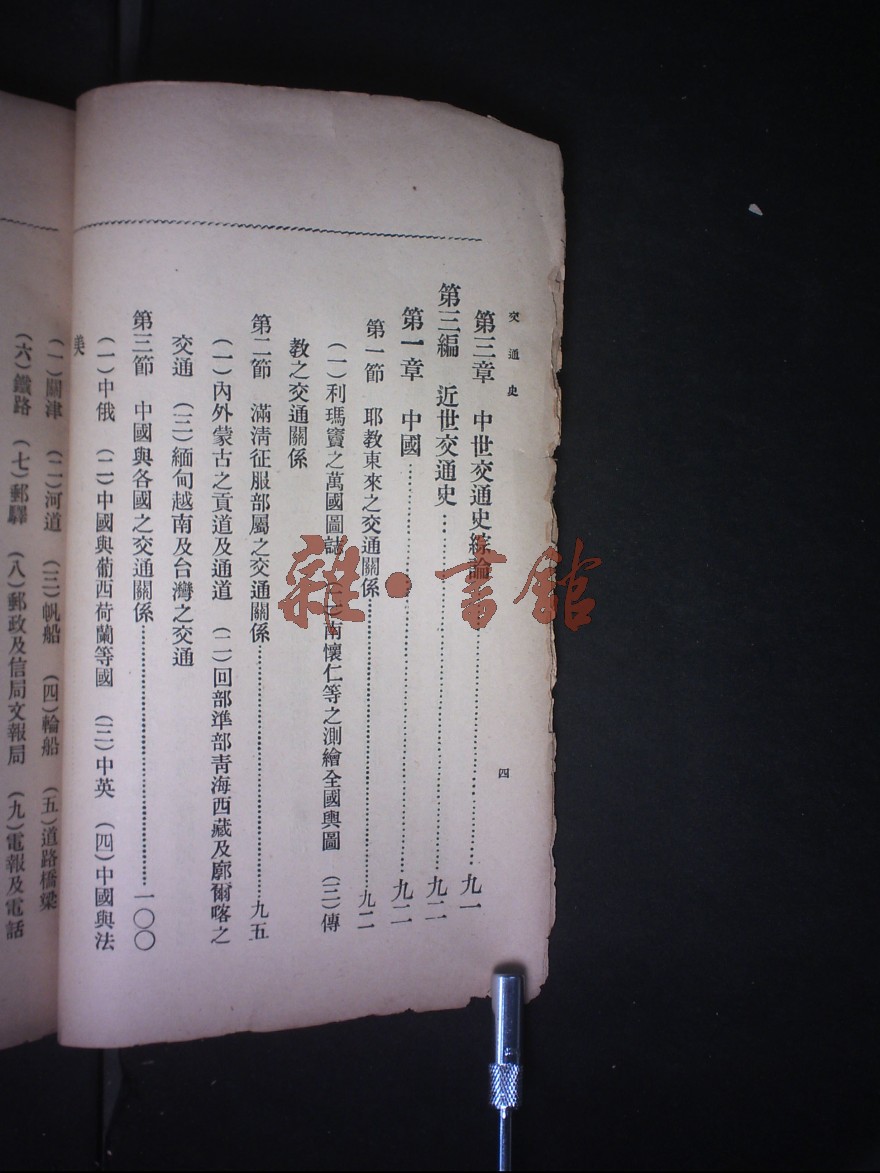 交通史
四
第三章 中世交通史綜論……九一
第三編 近世交通史……九二
第一章 中國……九二
第一節 耶教東來之交通關係……九二
（一）利瑪竇之萬國圖誌 （二）南懷仁等之測繪全國輿圖 （三）傳
教之交通關係
第二節 滿清征服部屬之交通關係……九五
（一）內外蒙古之貢道及通道 （二）回部準部青海西藏及廓爾喀之
交通 （三）緬甸越南及台灣之交通
第三節 中國與各國之交通關係……一〇〇
（一）中俄 （二）中國與葡西荷蘭等國 （三）中英 （四）中國與法
美
（一）關津 （二）河道 （三）帆船 （四）輪船 （五）道路橋梁
（六）鐵路 （七）郵驛 （八）郵政及信局文報局 （九）電報及電話
雜·書館